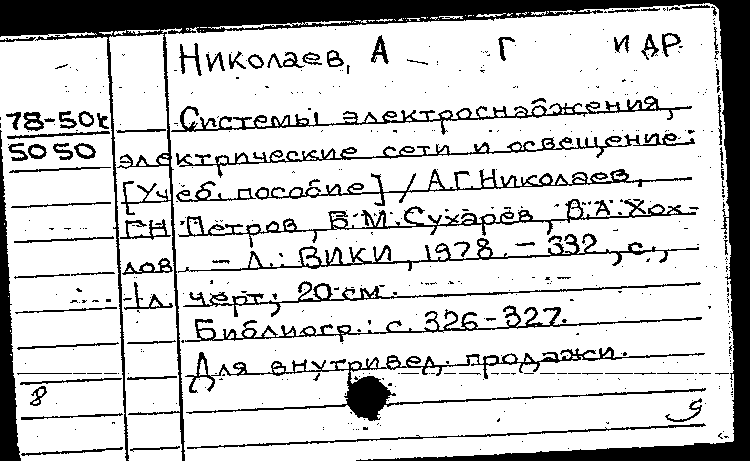 Николаев, А Г и др
78-50к Системы электроснабжения,
5050 электрические сети и освещение:
[Учеб. пособие] / А.Г.Николаев,
Г.Н Петров, Б.М.Сухарев, В.А.Хох-
лов. - Л.: ВИКИ, 1978. - 332, с.,
1л. черт; 20 см.
Библиогр.: с. 326-327.
Для внутривед. продажи.
8